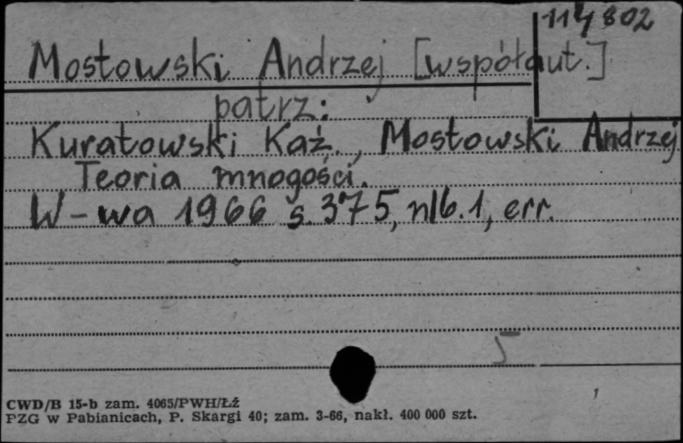 114802
Mostowski Andrzej [współaut.]
patrz:
Kuratowski Kaz., Mostowski Andrzej
Teoria mnogości.
W-wa 1966 s. 375, nlb. 1, err.
5
CWD/B 15-b zam. 4065/PWH/Łź
PZG w Pabianicach, P. Skargi 40; zam. 3-66, nakł. 400 000 szt.